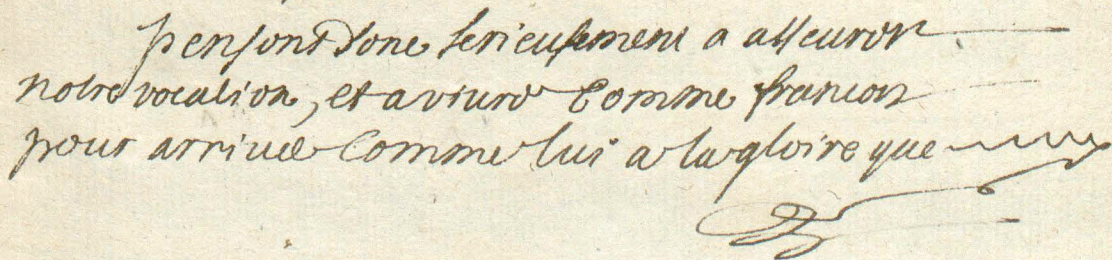 pensons donc serieusement a asseurer
notre vocation, et a viure comme francois
pour arriuer comme lui a la gloire que